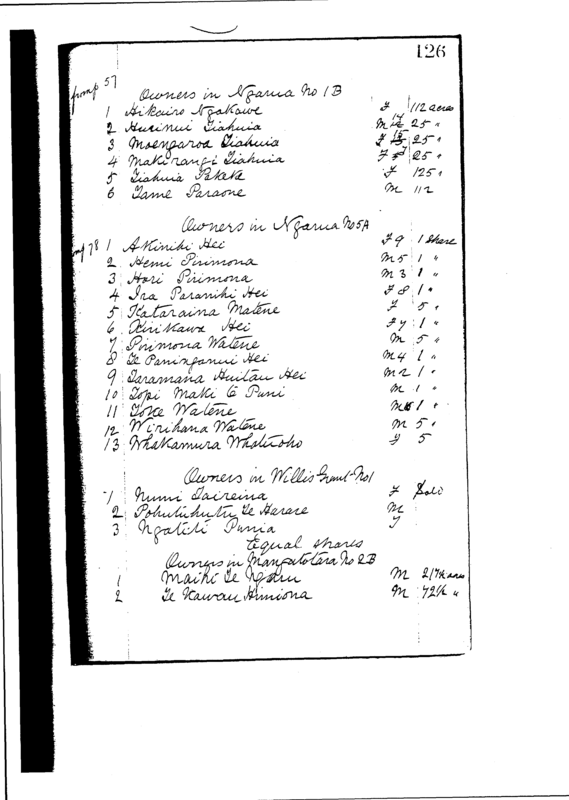 126
from p 57
Owners in Ngarua No 1B
1 Hikairo Ngakawe F 112 acres
2 Hurinui Tiahuia M 17 25 "
3 Moengaroa Tiahuia F 15 25 "
4 Makirangi Tiahuia F 25 "
5 Tiahuia Pakake F 125 "
6 Tame Paraone M 112
Owners in Ngarua No 5A
from p 78
1 Akiniki Hei F 9 1 share
2 Hemi Pirimona M 5 1 "
3 Hori Pirimona M 3 1 "
4 Ira Paraniki Hei F 8 1 "
5 Kataraina Matene F 5 "
6 Kirikawa Hei F 7 1 "
7 Pirimona Watene M 5 "
8 Te Paninganui Hei M 4 1 "
9 Taramana Huitau Hei M 2 1 "
10 Topi Maki te Puni M 1 "
11 Toke Watene M 1 "
12 Wirihana Watene M 5 "
13 Whakamura F 5
Owners in Willis Grant No 1
1 Numi Taireina F
2 Pohutuhutu Te Harare M
3 Ngatiti Punia F
Equal shares
Owners in Mangatotara No 2B
1 Maihi Te Ngaru M acres
2 Te Kawau Himiona M 72½ "